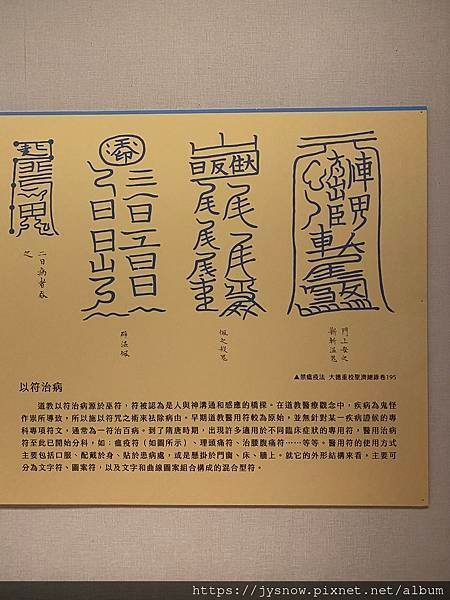 二日病者吞
之
辟温城
佩之殺鬼
門上安之
斬新温鬼
▲禁瘟疫法 大德重校聖濟總錄卷195
以符治病
道教以符治病源於巫符，符被認為是人與神溝通和感應的橋樑。在道教醫療觀念中，疾病為鬼怪
作祟所導致，所以施以符咒之術來袪除病由。早期道教醫用符較為原始，並無針對某一疾病證候的專
科專項符文，通常為一符治百病。到了隋唐時期，出現許多適用於不同臨床症狀的專用符，醫用治病
符至此已開始分科，如：瘟疫符（如圖所示）、理頭痛符、治腰腹痛符……等等。醫用符的使用方式
主要包括口服、配戴於身、貼於患病處，或是懸掛於門窗、床、牆上。就它的外形結構來看，主要可
分為文字符、圖案符，以及文字和曲線圖案組合構成的混合型符。
https://jysnow.pixnet.net/album